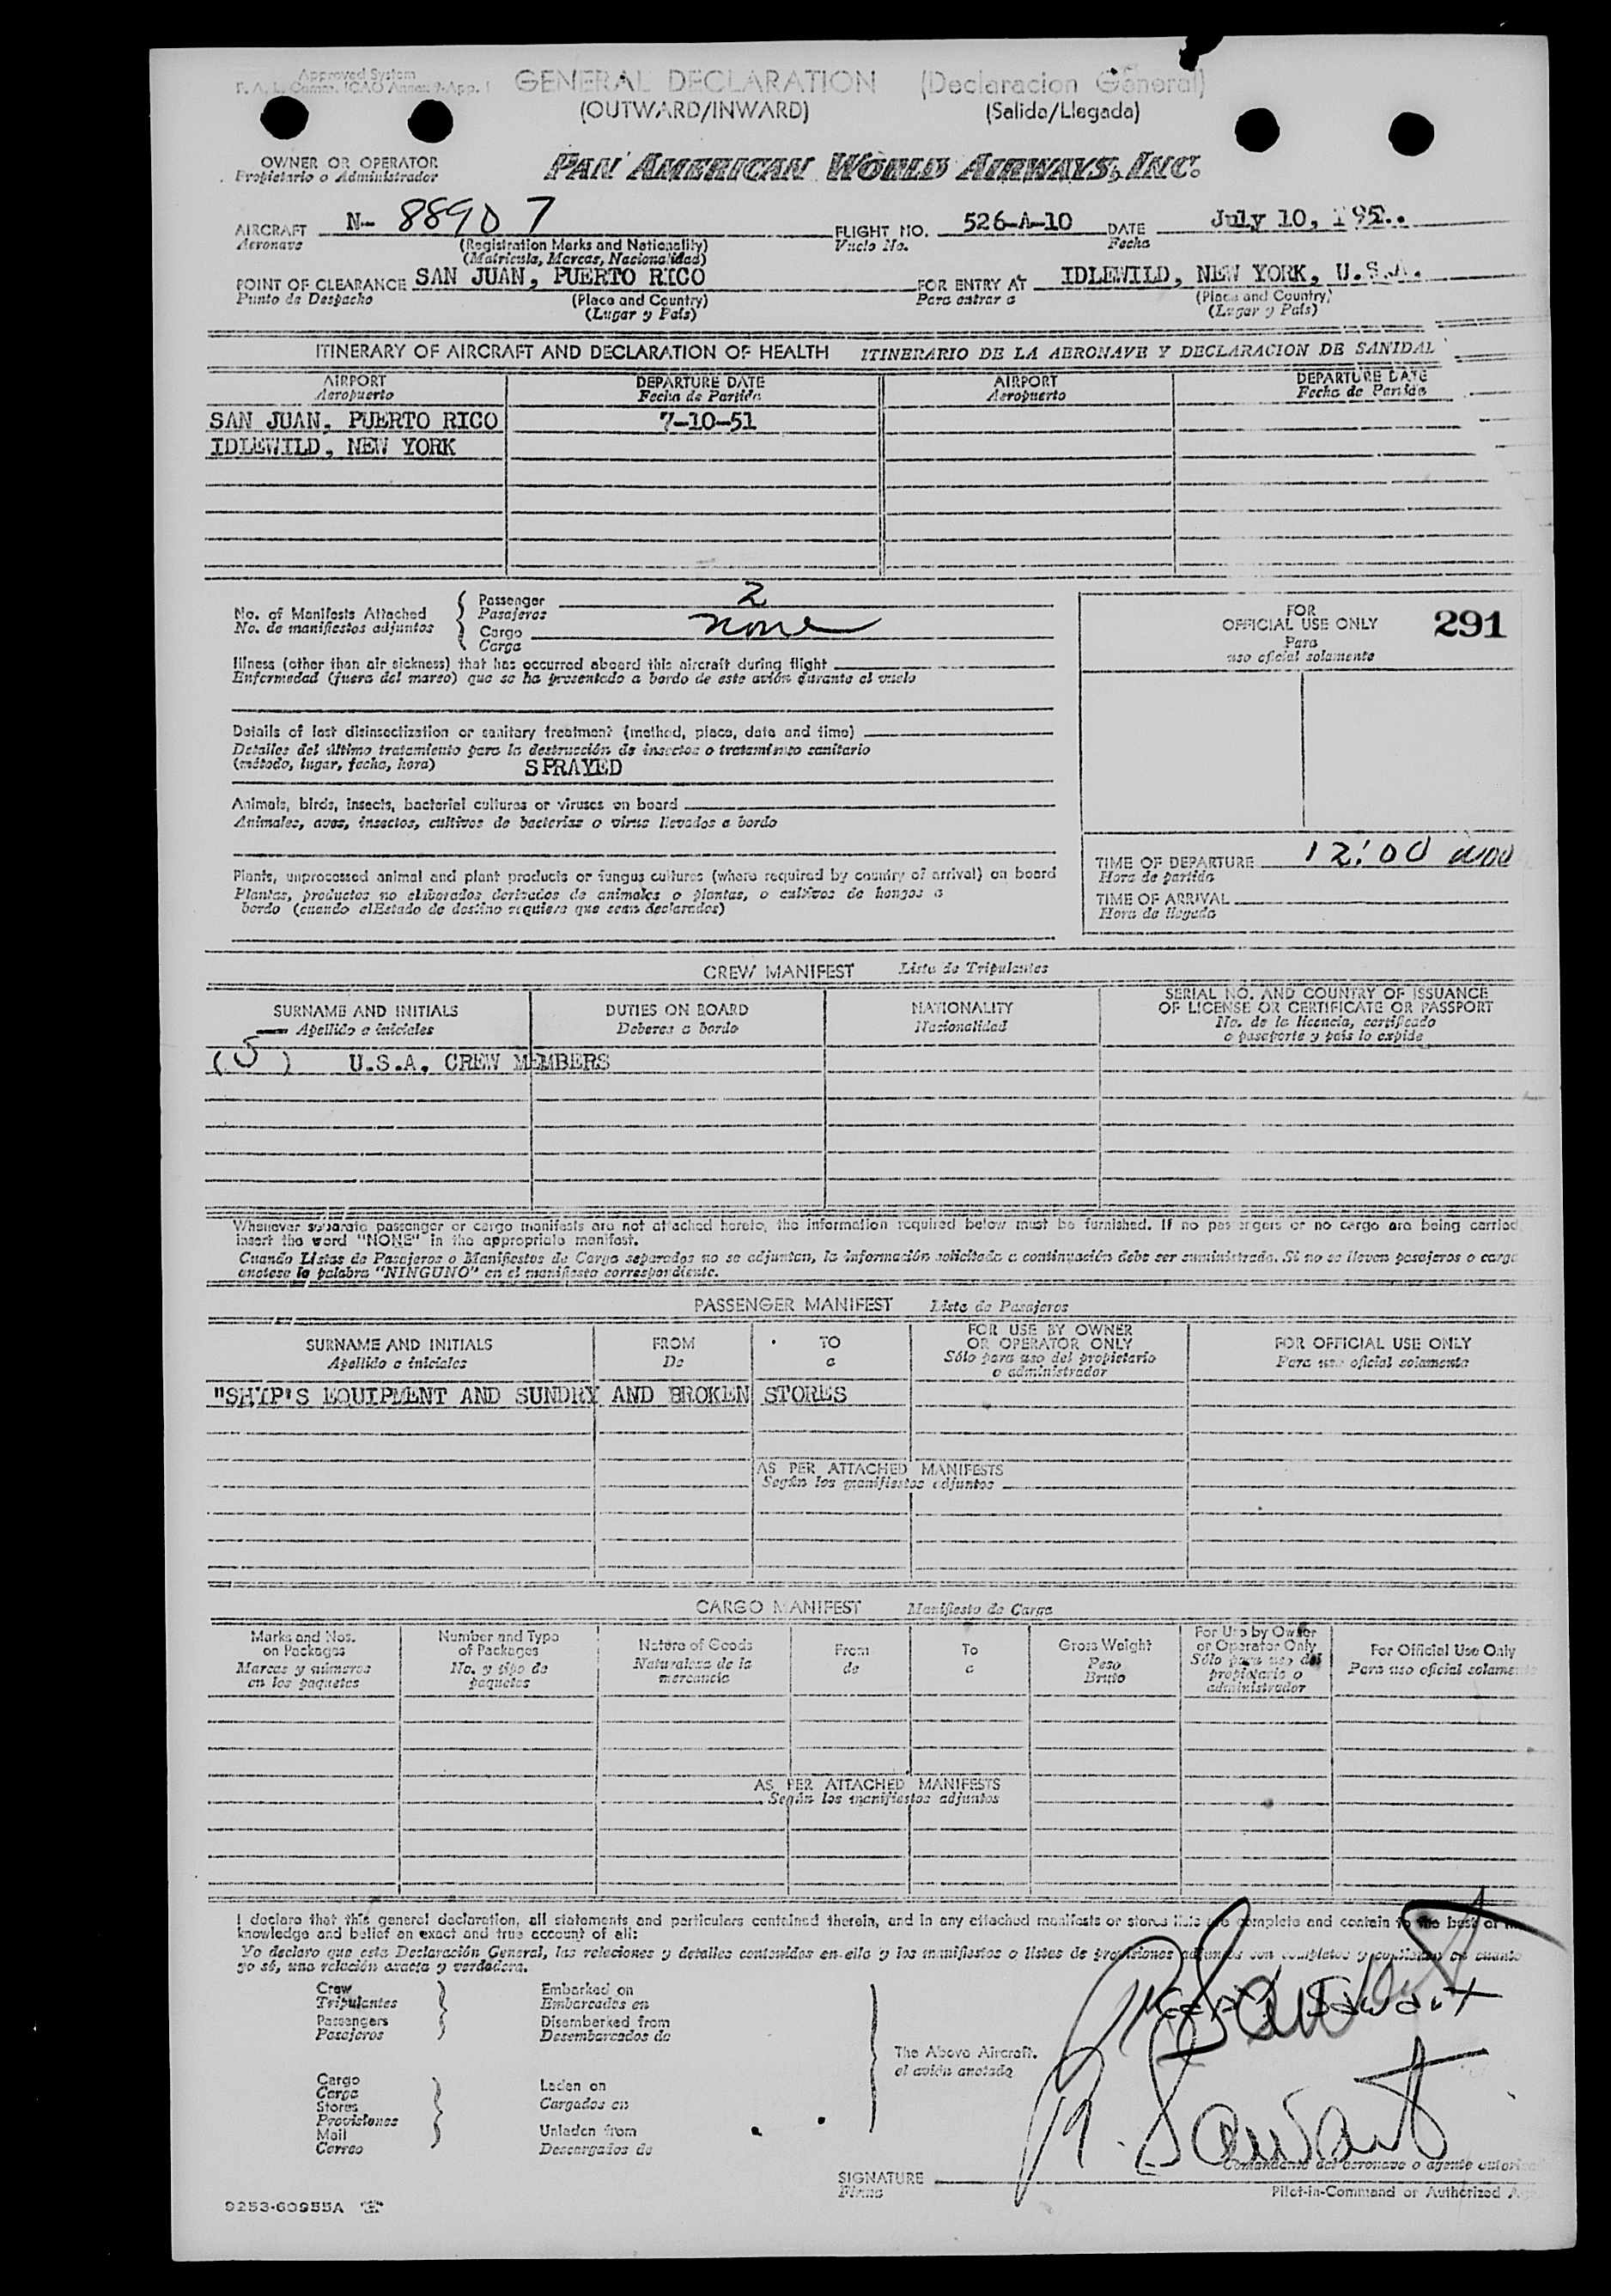 Approved System GENERAL DECLARATION (Declaracion General)
F. A. L. Comm. ICAO Annex 9-App. 1
(OUTWARD/INWARD) (Salida/Llegada)
OWNER OR OPERATOR PAN AMERICAN WORLD AIRWAYS, INC.
Propietario o Administrador
AIRCRAFT N- 88907 FLIGHT NO. 526-A-10 DATE July 10, 195
Aeronave (Registration Marks and Nationality) Vuelo No. Fecha
(Matricula, Marcas, Nacionalidad)
POINT OF CLEARANCE SAN JUAN, PUERTO RICO FOR ENTRY AT IDLEWILD, NEW YORK, U.S.A.
Punto de Despacho (Place and Country) Para entrar a (Place and Country)
(Lugar y País) (Lugar y País)
ITINERARY OF AIRCRAFT AND DECLARATION OF HEALTH ITINERARIO DE LA AERONAVE Y DECLARACION DE SANIDAD
AIRPORT DEPARTURE DATE AIRPORT DEPARTURE DATE
Aeropuerto Fecha de Partida Aeropuerto Fecha de Partida
SAN JUAN, PUERTO RICO 7-10-51
IDLEWILD, NEW YORK
No. of Manifests Attached Passenger 2
No. de manifiestos adjuntos Pasajeros
Cargo none
Carga
FOR
OFFICIAL USE ONLY 291
Para
uso oficial solamente
Illness (other than air sickness) that has occurred aboard this aircraft during flight
Enfermedad (fuera del mareo) que se ha presentado a bordo de este avión durante el vuelo
Details of last disinsectization or sanitary treatment (method, place, date and time)
Detalles del último tratamiento para la destrucción de insectos o tratamiento sanitario
(método, lugar, fecha, hora) SPRAYED
Animals, birds, insects, bacterial cultures or viruses on board
Animales, aves, insectos, cultivos de bacterias o virus llevados a bordo
Plants, unprocessed animal and plant products or fungus cultures (where required by country of arrival) on board
Plantas, productos no elaborados derivados de animales o plantas, o cultivos de hongos a
bordo (cuando elEstado de destino requiera que sean declarados)
TIME OF DEPARTURE 12:00
Hora de partida
TIME OF ARRIVAL
Hora de llegada
CREW MANIFEST Lista de Tripulantes
SURNAME AND INITIALS DUTIES ON BOARD NATIONALITY SERIAL NO. AND COUNTRY OF ISSUANCE
Apellido e iniciales Deberes a bordo Nacionalidad OF LICENSE OR CERTIFICATE OR PASSPORT
No. de la licencia, certificado
o pasaporte y país lo expide
(5) U.S.A. CREW MEMBERS
Whenever separate passenger or cargo manifests are not attached hereto, the information required below must be furnished. If no passengers or no cargo are being carried,
insert the word "NONE" in the appropriate manifest.
Cuando Listas de Pasajeros o Manifiestos de Carga separados no se adjuntan, la información solicitada a continuación debe ser suministrada. Si no se llevan pasajeros o carga
anotese la palabra "NINGUNO" en el manifiesto correspondiente.
PASSENGER MANIFEST Lista de Pasajeros
SURNAME AND INITIALS FROM TO FOR USE BY OWNER OR OPERATOR ONLY FOR OFFICIAL USE ONLY
Apellido e iniciales De a Sólo para uso del propietario o administrador Para uso oficial solamente
"SHIP'S EQUIPMENT AND SUNDRY AND BROKEN STORES
AS PER ATTACHED MANIFESTS
Según los manifiestos adjuntos
CARGO MANIFEST Manifiesto de Carga
Marks and Nos. on Packages Number and Type of Packages Nature of Goods From To Gross Weight For Use by Owner or Operator Only For Official Use Only
Marcas y números en los paquetes No. y tipo de paquetes Naturaleza de la mercancia de a Peso Bruto Sólo para uso del propietario o administrador Para uso oficial solamente
AS PER ATTACHED MANIFESTS
Según los manifiestos adjuntos
I declare that this general declaration, all statements and particulars contained therein, and in any attached manifests or stores lists are complete and contain to the best of my
knowledge and belief an exact and true account of all:
Yo declaro que esta Declaración General, las relaciones y detalles contenidos en ella y los manifiestos o listas de provisiones adjuntos son completos y contienen en cuanto
yo sé, una relación exacta y verdadera.
Crew Embarked on
Tripulantes Embarcados en
Passengers Disembarked from
Pasajeros Desembarcados de
The Above Aircraft.
el avión anotado
Cargo Laden on
Carga Cargados en
Stores
Provisiones
Mail Unladen from
Correo Descargados de
R. Sawant
SIGNATURE Comandante del aeronave o agente
Firma Pilot-in-Command or Authorized
9253-60955A "E"